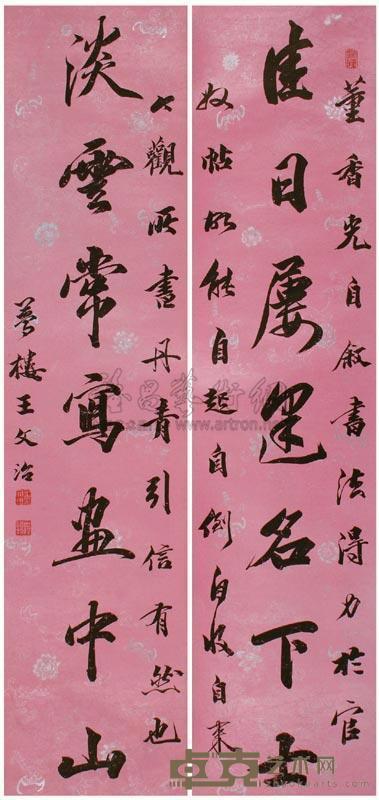 董香光自叙書法得力於官
佳日屢逢名下士
奴帖故能自起自倒自收自束
今觀所書丹青引信有然也
淡雲常寫畫中山
夢樓王文治
雅昌藝術網
www.artron.net
卓克艺术网